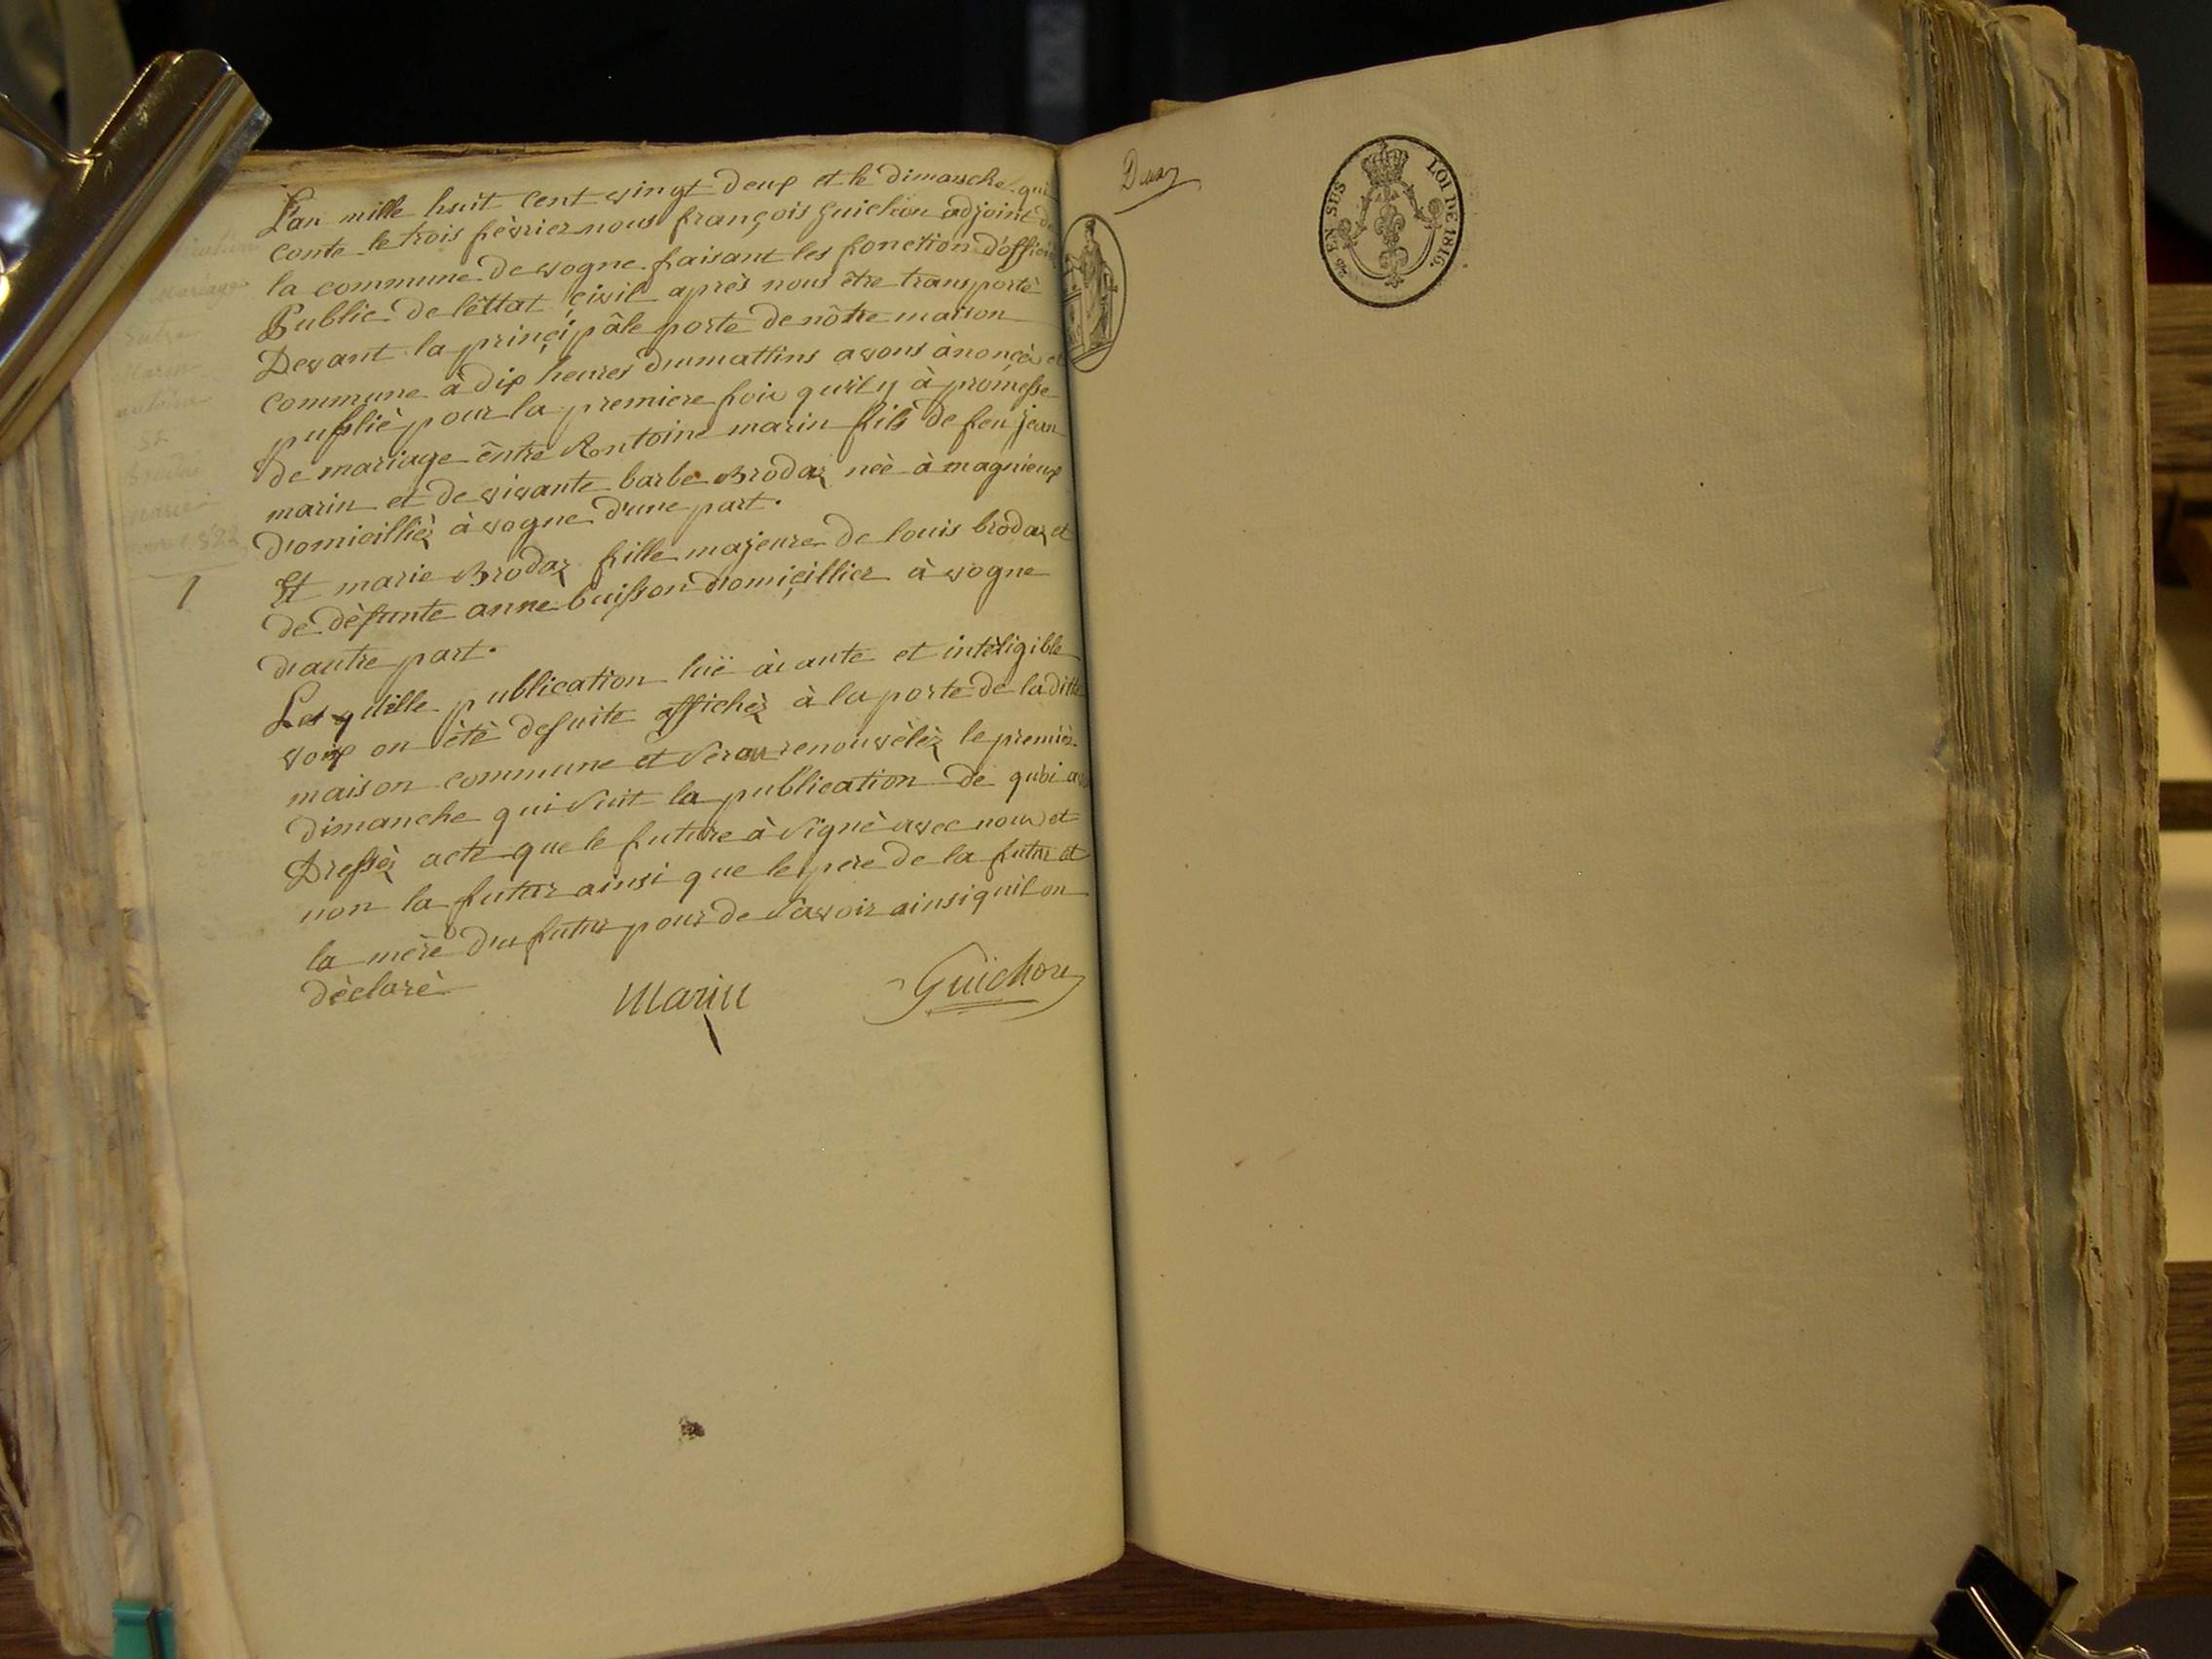 L'an mille huit cent vingt deux et le dimanche qui
conte le trois fèvrier nous françois Guichon adjoint de
la commune de vogne faisant les fonction d'officier
Public de lèttat civil après nous être transportè
Devant la principâle porte de nôtre maison
commune à dix heures du mattins avons ànoncè et
publiè pour la premiere foix qu'il y à promesse
de mariage êntre Antoine marin fils de feu jean
marin et de vivante barbe Brodaz nèè à magnieux
domicillièz à vogne d'une part.
Et marie Brodaz fille majeure de louis brodaz et
de dèfunte anne buisson domicillier à vogne
d'autre part.
Les quille publication luë àiante et intèligible
voix on étè desuite affichèz à la porte de laditte
maison commune et seron renouvèlèz le premier
dimanche qui suit la publication de quoi avons
Dressèz acte que le future à signè avec nous et
non la futur ainsi que le pere de la futur et
la mère du futur pour de savoir ainsi quil on
dèclarè
Marin
Guichon
mariage
Marin
antoine
et
1822
1
Deux
EN SUS
LOI DE 1816.